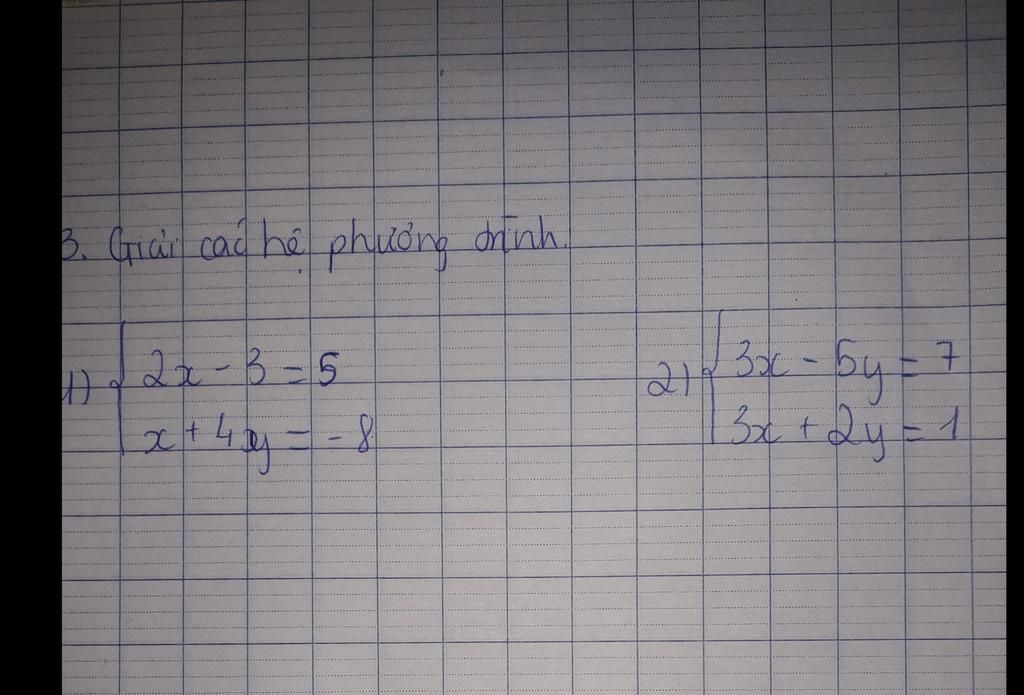 3. Giải các hệ phương trình.
1) { 2x - 3 = 5
x + 4y = -8
2) { 3x - 5y = 7
3x + 2y = 1